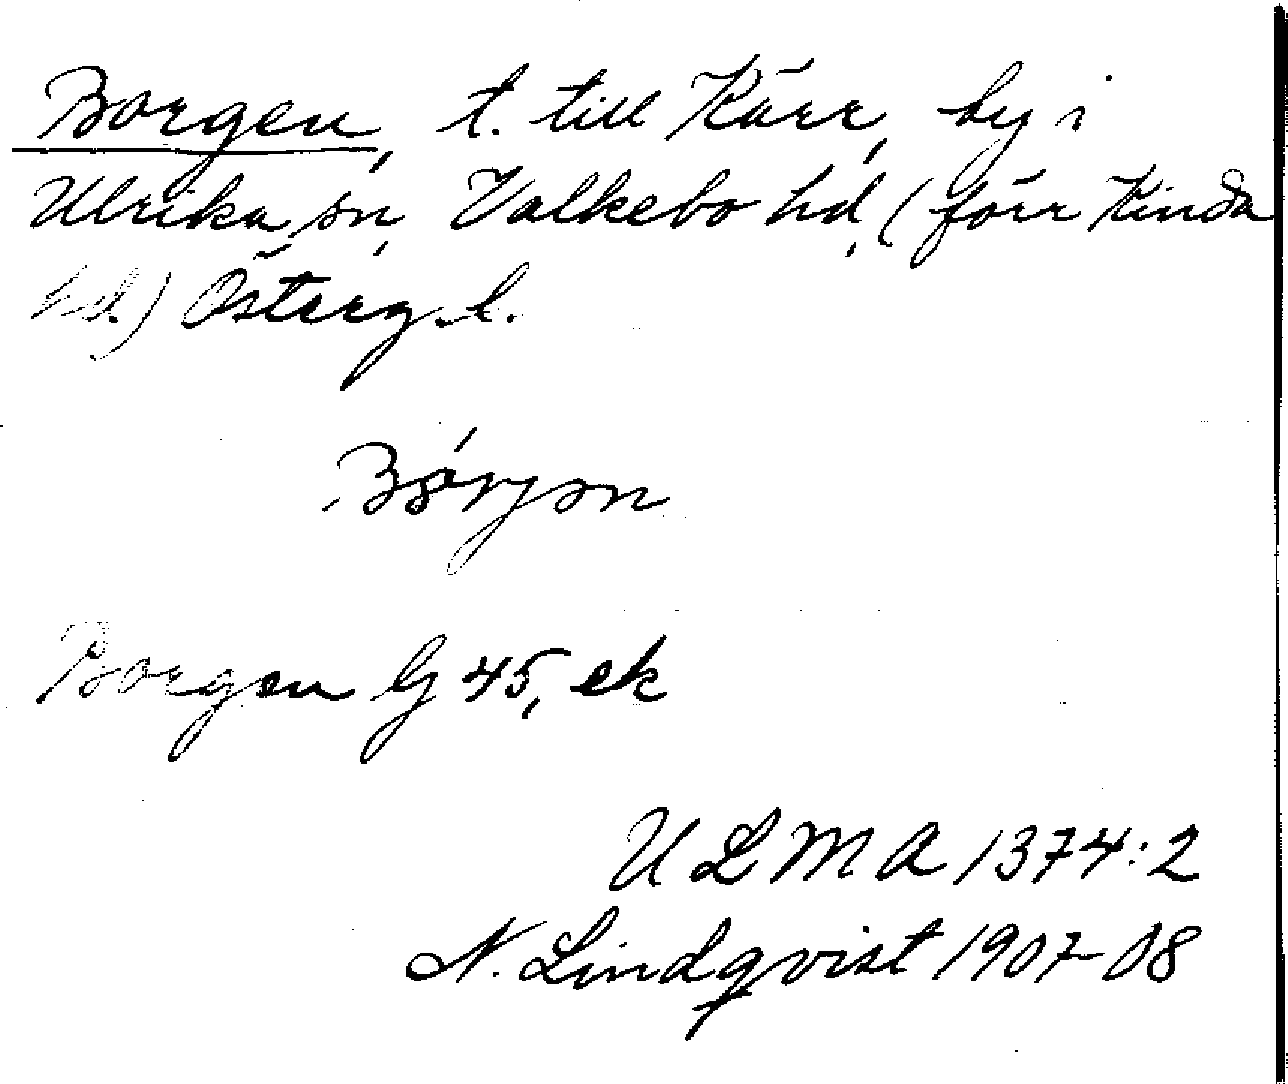 Borgen, t. till Kärr, by i
Ulrika sn, Valkebo hd, (förr Kinda
hd.) Österg. l.
Bórjən
Borgen G 45, ek
ULMA 1374:2
N. Lindqvist 1907-08